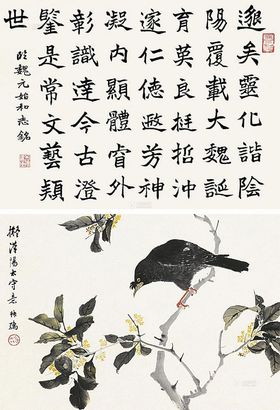 邈矣靈化諧陰
陽覆載大魏誕
育英良挺哲沖
邃仁德遐芳神
凝內顯體睿外
彰識達今古澄
鑒是常文藝頴
世
臨魏元始和志銘
擬漢陽太守意